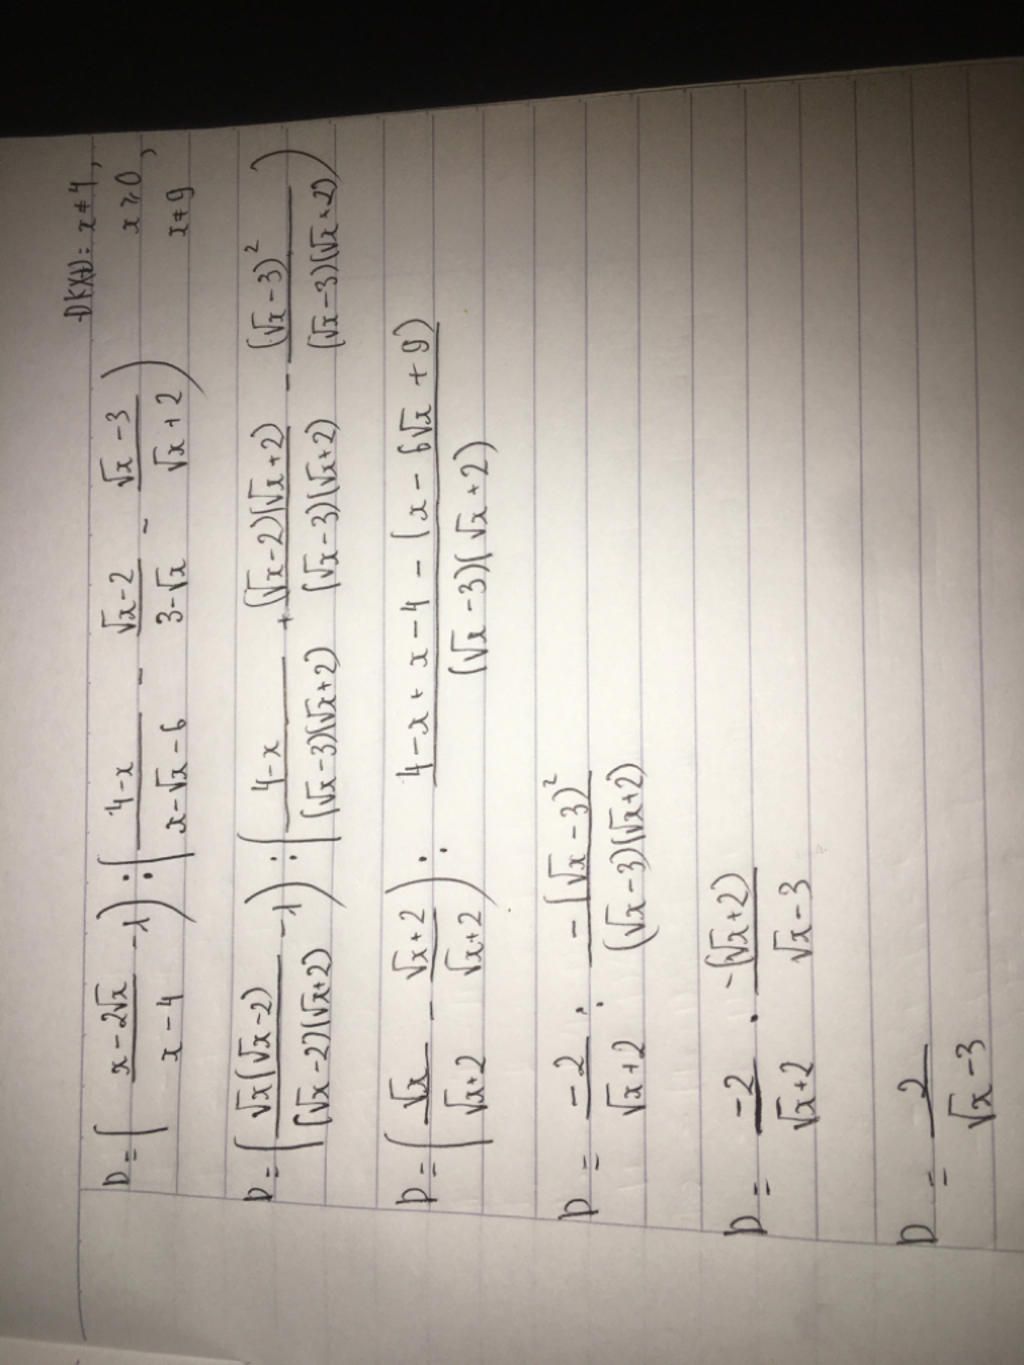 ĐKXĐ: x ≠ 4,
x ≥ 0,
x ≠ 9
D = ( (x - 2√x)/(x - 4) - 1 ) : ( (4 - x)/(x - √x - 6) - (√x - 2)/(3 - √x) - (√x - 3)/(√x + 2) )
D = ( (√x(√x - 2))/((√x - 2)(√x + 2)) - 1 ) : ( (4 - x)/((√x - 3)(√x + 2)) + ((√x - 2)(√x + 2))/((√x - 3)(√x + 2)) - (√x - 3)²/((√x - 3)(√x + 2)) )
D = ( √x/(√x + 2) - (√x + 2)/(√x + 2) ) : (4 - x + x - 4 - (x - 6√x + 9))/((√x - 3)(√x + 2))
D = -2/(√x + 2) : -(√x - 3)²/((√x - 3)(√x + 2))
D = -2/(√x + 2) · -(√x + 2)/(√x - 3)
D = 2/(√x - 3)